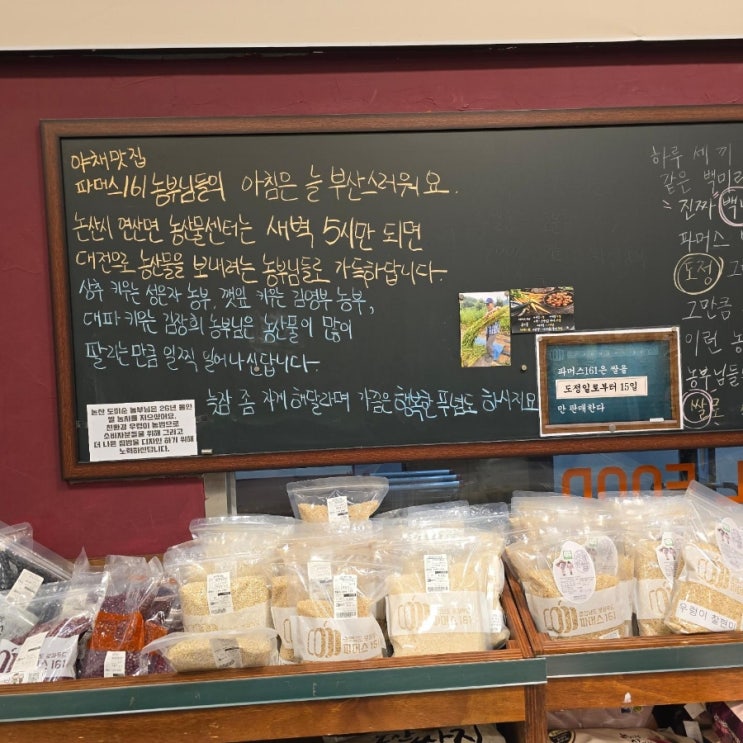 야채맛집
파머스161 농부님들의 아침은 늘 부산스러워요.
논산시 연산면 농산물센터는 새벽 5시만 되면
대전으로 농산물을 보내려는 농부님들로 가득하답니다.
상추 키우는 성은자 농부, 깻잎 키우는 김영부 농부,
대파 키우는 김장희 농부님은 농산물이 많이
팔리는만큼 일찍 일어나신답니다.
늦잠 좀 자게 해달라며 가끔은 행복한 푸념도 하시지요
논산 도희순 농부님은 26년 동안
쌀 농사를 지으셨어요.
친환경 우렁이 농법으로
소비자분들을 위해 그리고
더 나은 쌀밥을 디자인 하기 위해
노력하신답니다.
파머스161은 쌀을
도정일로부터 15일
만 판매한다
하루 세 끼
같은 백미라
진짜
파머스
도정
그만큼
이런
농부님들
쌀로
FOOD
161
파머스161
파머스161
파머스161
파머스161
우렁이 찰현미